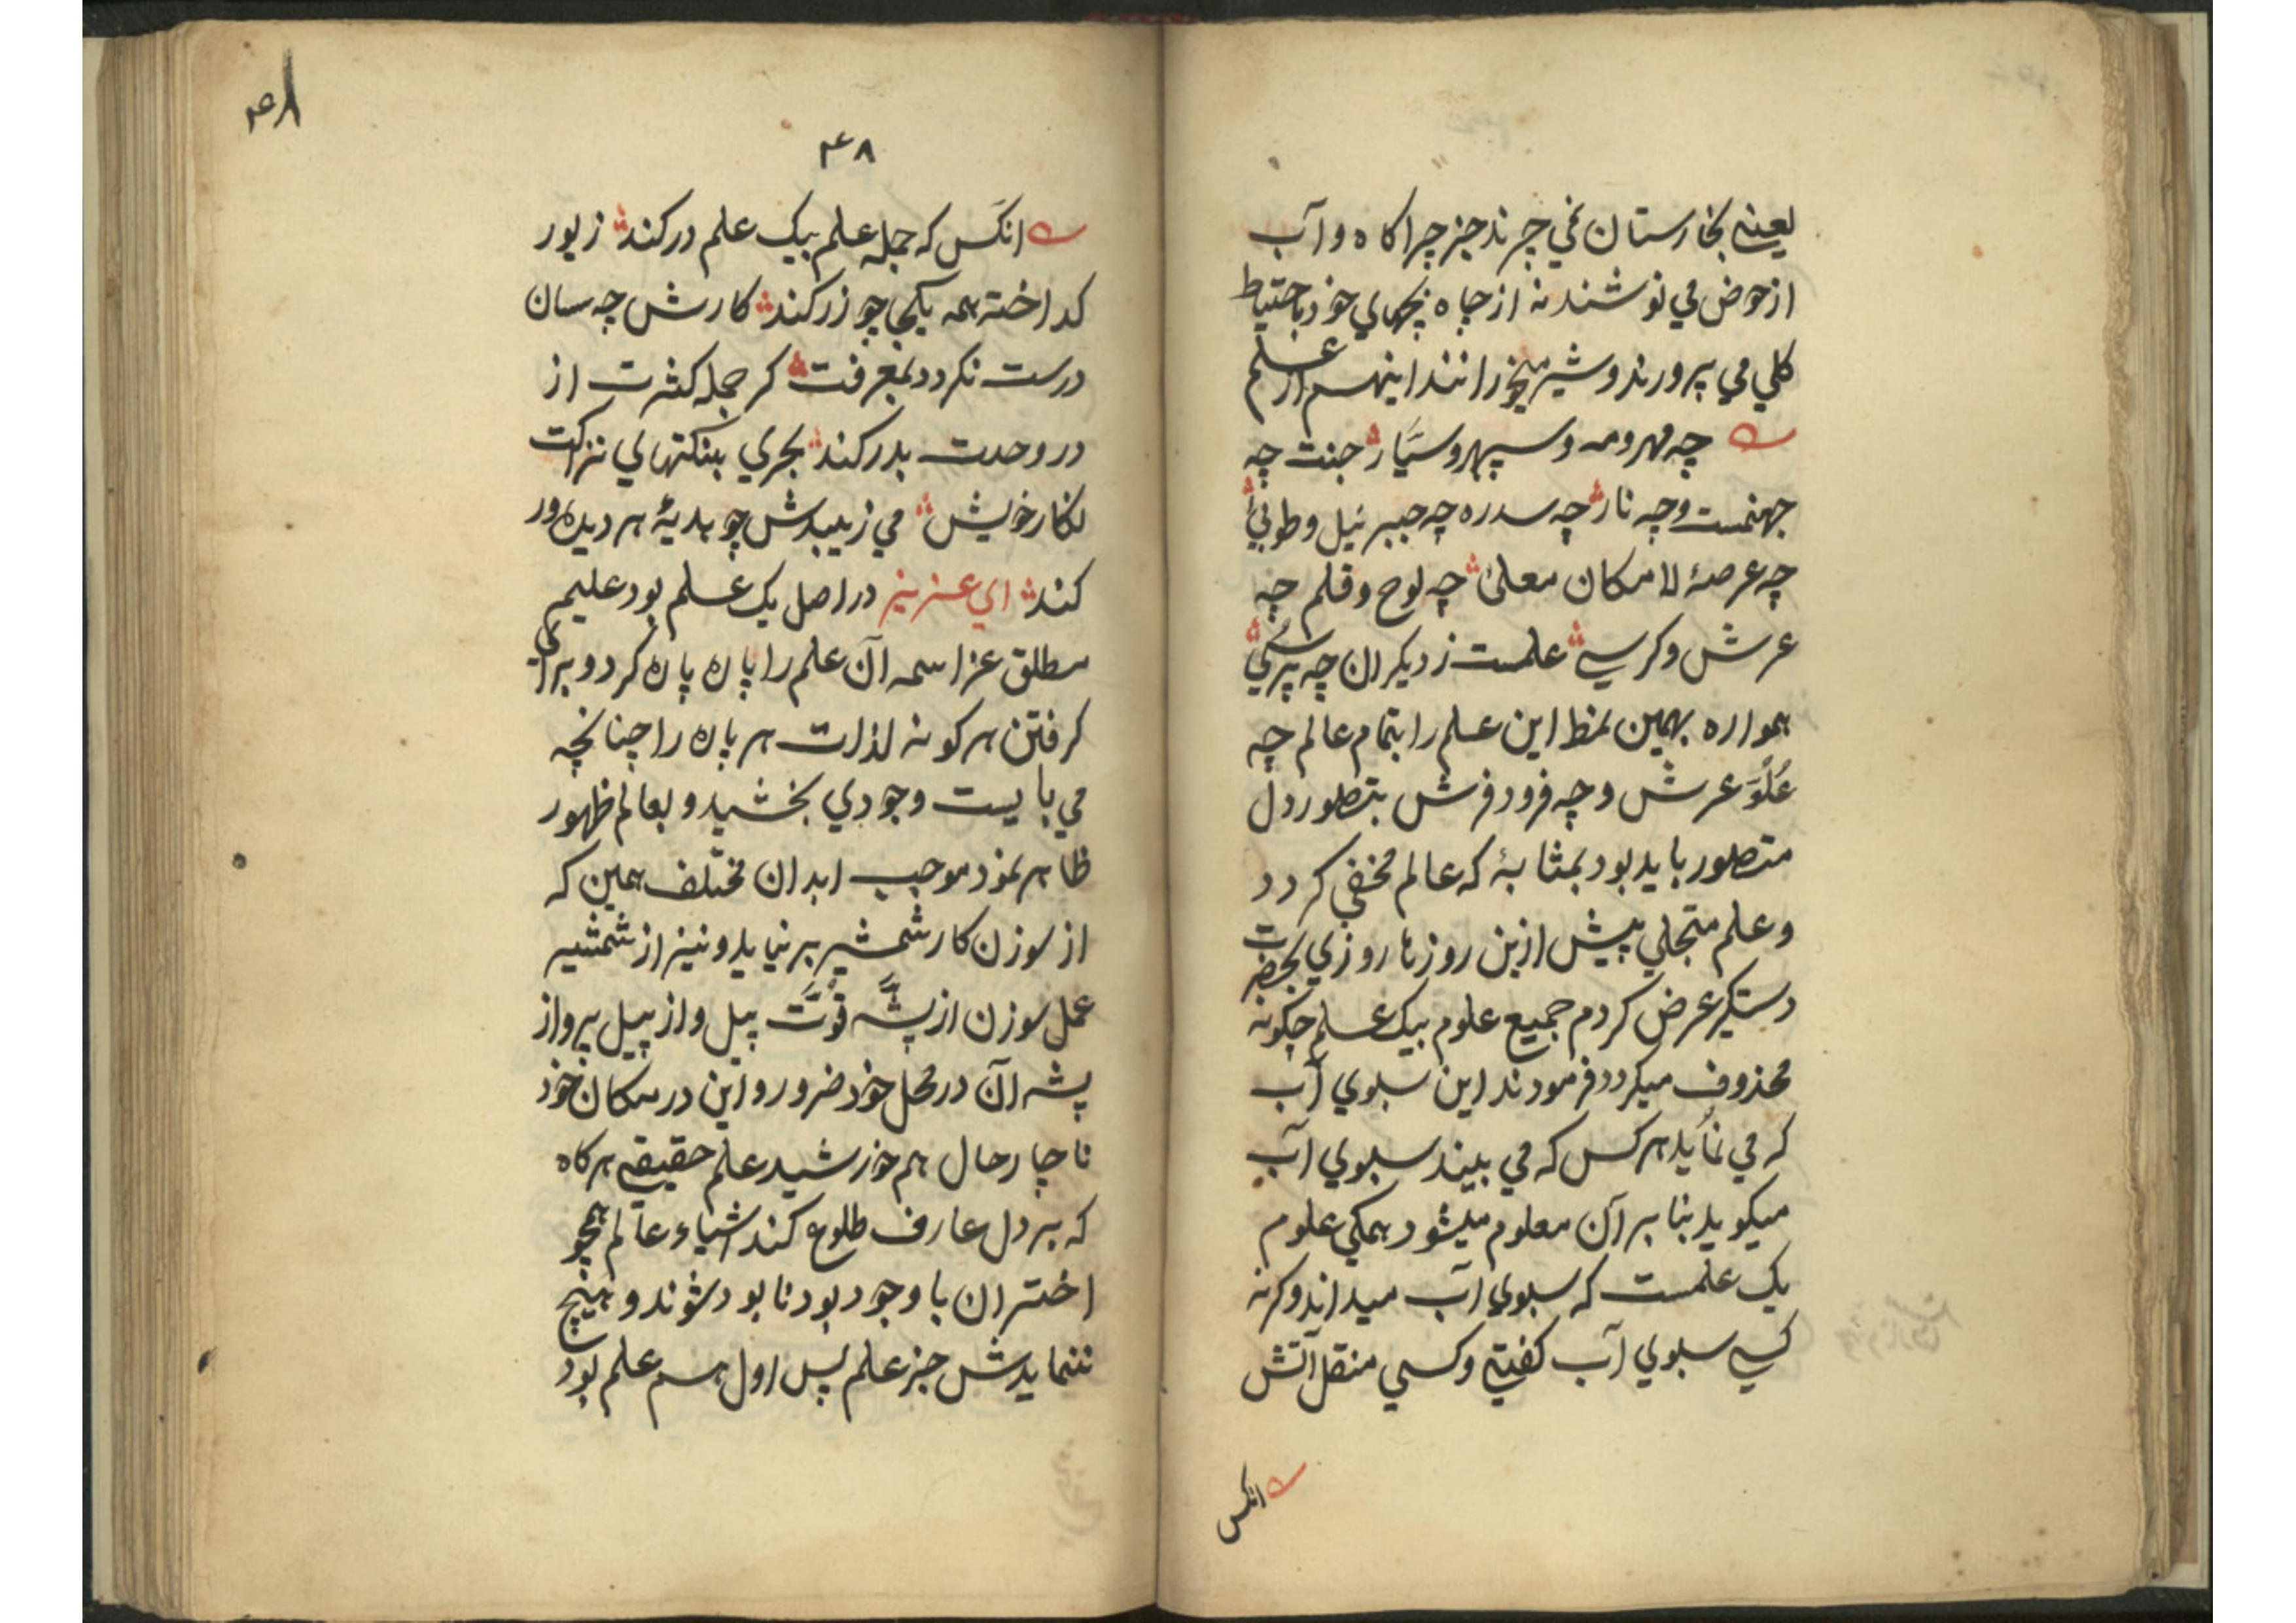 یعنے بخارستان نمي چرند جز چراکاه و آب
از حوض مي نوشند نه از چاه بچهاي خود باحتیاط
کلي مي پرورند و شیر میخورانند اینهم از علم
چه مهر و مه و سپهر و سیّار جنت چه
جهنمست و چه نار چه سدره چه جبرئیل و طوبیٰ
چه عرصهٔ لامکان معلیٰ چه لوح و قلم چه
عرش و کرسے علمست ز دیکران چه پرسي
همواره بهمین نمط این علم را بتمام عالم چه
عُلُوّ عرش و چه فرود فرش بتصور دل
متصور باید بود بمثابهٔ که عالم مخفي کردد
و علم متجلي پیش ازین روزها روزي بحضرت
دستکیر عرض کردم جمیع علوم بیک علم چکونه
محذوف میکردد فرمودند این سبوي آب
که مي نماید هر کس که مي بیند سبوي آب
میکوید بنا بر آن معلوم میشود همکي علوم
یک علمست که سبوي آب میداند و کرنه
کسے سبوي آب کفتے و کسي منقل آتش
انکس
۴۸
۴۸
انکس که جمله علم بیک علم در کند زیور
کداخته همه یکجا چو زر کند کارش چه سان
درست نکردد بمعرفت کر جمله کثرت از
در وحدت بدر کند بحري بنکتهاي نزاکت
نکار خویش مي زیبدش چو هدیهٔ هر دیده ور
کند اي عزیز در اصل یک علم بود علیم
مطلق عز اسمه آن علم را پاره پاره کرد و براي
کرفتن هر کونه لذات هر پاره را چنانچه
مي بایست وجودي بخشید و بعالم ظهور
ظاهر نمود موجب ابدان مختلف همین که
از سوزن کار شمشیر برنیاید و نیز از شمشیر
عمل سوزن از پشّه قوّت پیل و از پیل پرواز
پشه آن در محل خود ضرور و این در مکان خود
ناچار حال هم خورشید علم حقیقے هرکاه
که بر دل عارف طلوع کند اشیاء عالم همچو
اختران با وجود بود نابود شوند و هیچ
ننماید جز علم پس اول هم علم بود